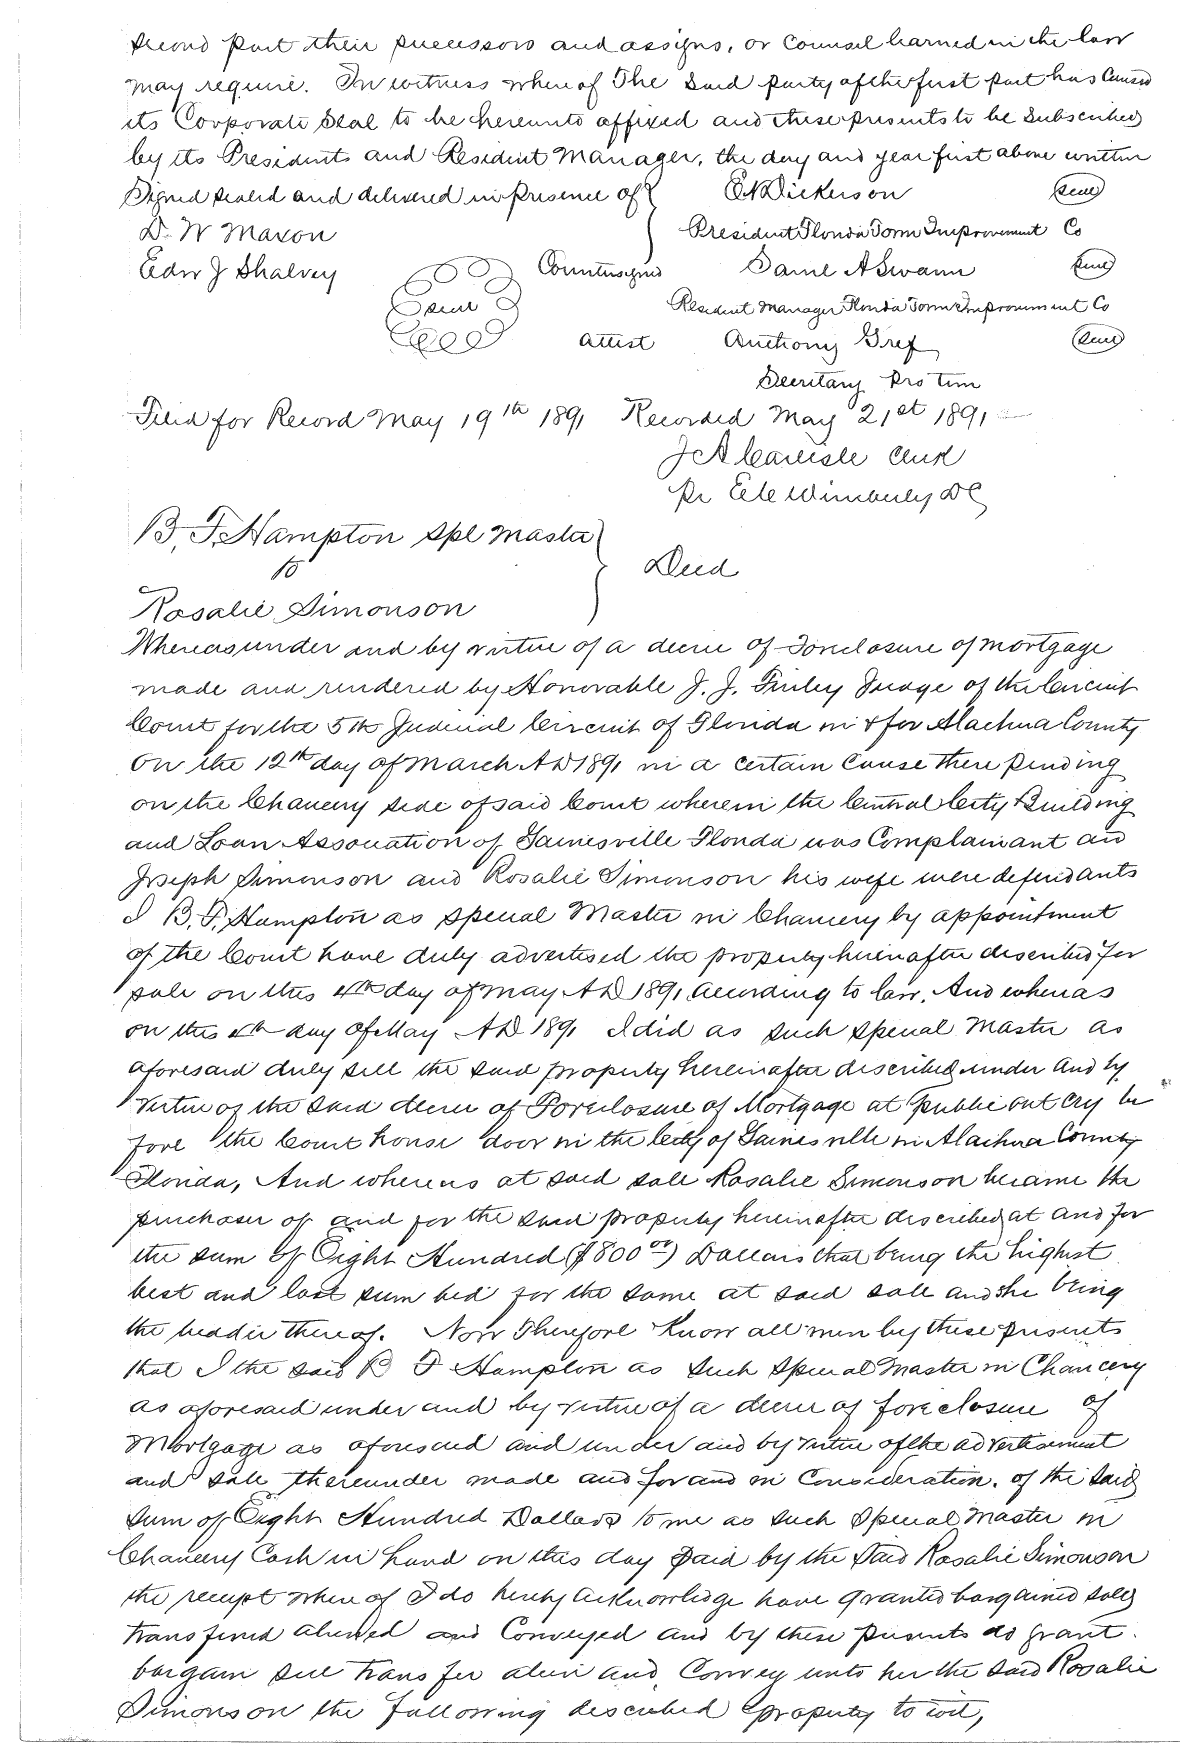 second part their successors and assigns, or Counsel learned in the law
may require. In witness whereof The said party of the first part has Caused
its Corporate Seal to be hereunto affixed and these presents to be Subscribed
by its Presidents and Resident Manager, the day and year first above written
Signed sealed and delivered in presence of } E N Dickerson (Seal)
D. W Maxon President Florida Town Improvement Co
Edw J Shalvey Countersigned Saml A Swann (Seal)
Seal Resident Manager Florida Town Improvement Co
attest Anthony Gref (Seal)
Secretary Pro tem
Filed for Record May 19th 1891 Recorded May 21st 1891
J A Carlisle Clerk
Pr E C Wimberley D C
B. F. Hampton Spl Master
to } Deed
Rosalie Simonson
Whereas under and by virtue of a decree of Foreclosure of mortgage
made and rendered by Honorable J. J. Finley Judge of the Circuit
Court for the 5th Judicial Circuit of Florida in & for Alachua County
on the 12th day of March AD 1891 in a certain Cause there pending
on the Chancery side of said Court wherein the Central City Building
and Loan Association of Gainesville Florida was Complainant and
Joseph Simonson and Rosalie Simonson his wife were defendants
I B. F. Hampton as Special Master in Chancery by appointment
of the Court have duly advertised the property hereinafter described for
sale on this 4th day of May AD 1891 according to law. And whereas
on this 4th day of May AD 1891 I did as such special Master as
aforesaid duly sell the said property hereinafter described under and by
virtue of the said decree of Foreclosure of Mortgage at public out cry be
fore the Court house door in the City of Gainesville in Alachua County
Florida, And whereas at said sale Rosalie Simonson became the
purchaser of and for the said property hereinafter described at and for
the sum of Eight Hundred ($800 00) Dollars that being the highest
best and last sum bid for the same at said sale and she being
the biddir thereof. Now Therefore Know all men by these presents
that I the said B F Hampton as such special Master in Chancery
as aforesaid under and by virtue of a decree of foreclosure of
Mortgage as aforesaid and under and by virtue of the advertisement
and sale thereunder made and for and in Consideration. of the said
sum of Eight Hundred Dollars to me as such Special Master in
Chancery Cash in hand on this day paid by the said Rosalie Simonson
the receipt whereof I do hereby acknowledge have granted bargained sold
transfered aliened and Conveyed and by these presents do grant.
bargain sell transfer alien and Convey unto her the said Rosalie
Simonson the following described property to wit,